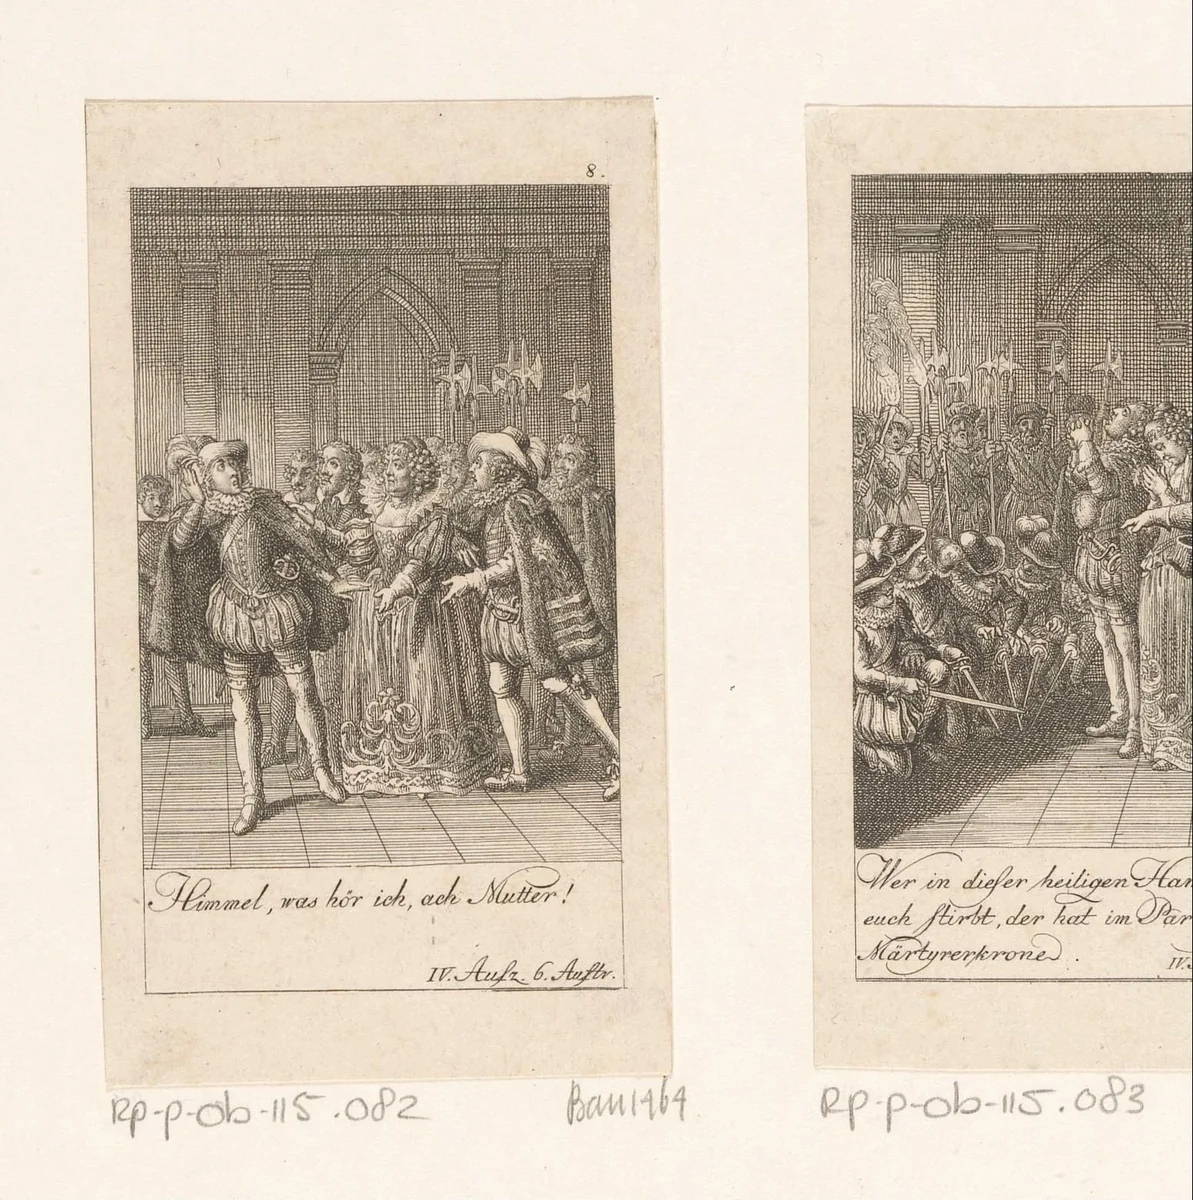 8.
Himmel, was hör ich, ach Mutter!
IV. Aufz. 6. Auftr.
Wer in dieſer heiligen Han
euch ſtirbt, der hat im Par
Märtyrerkrone.
IV.
RP-P-OB-115.082
Bau 1464
RP-P-OB-115.083